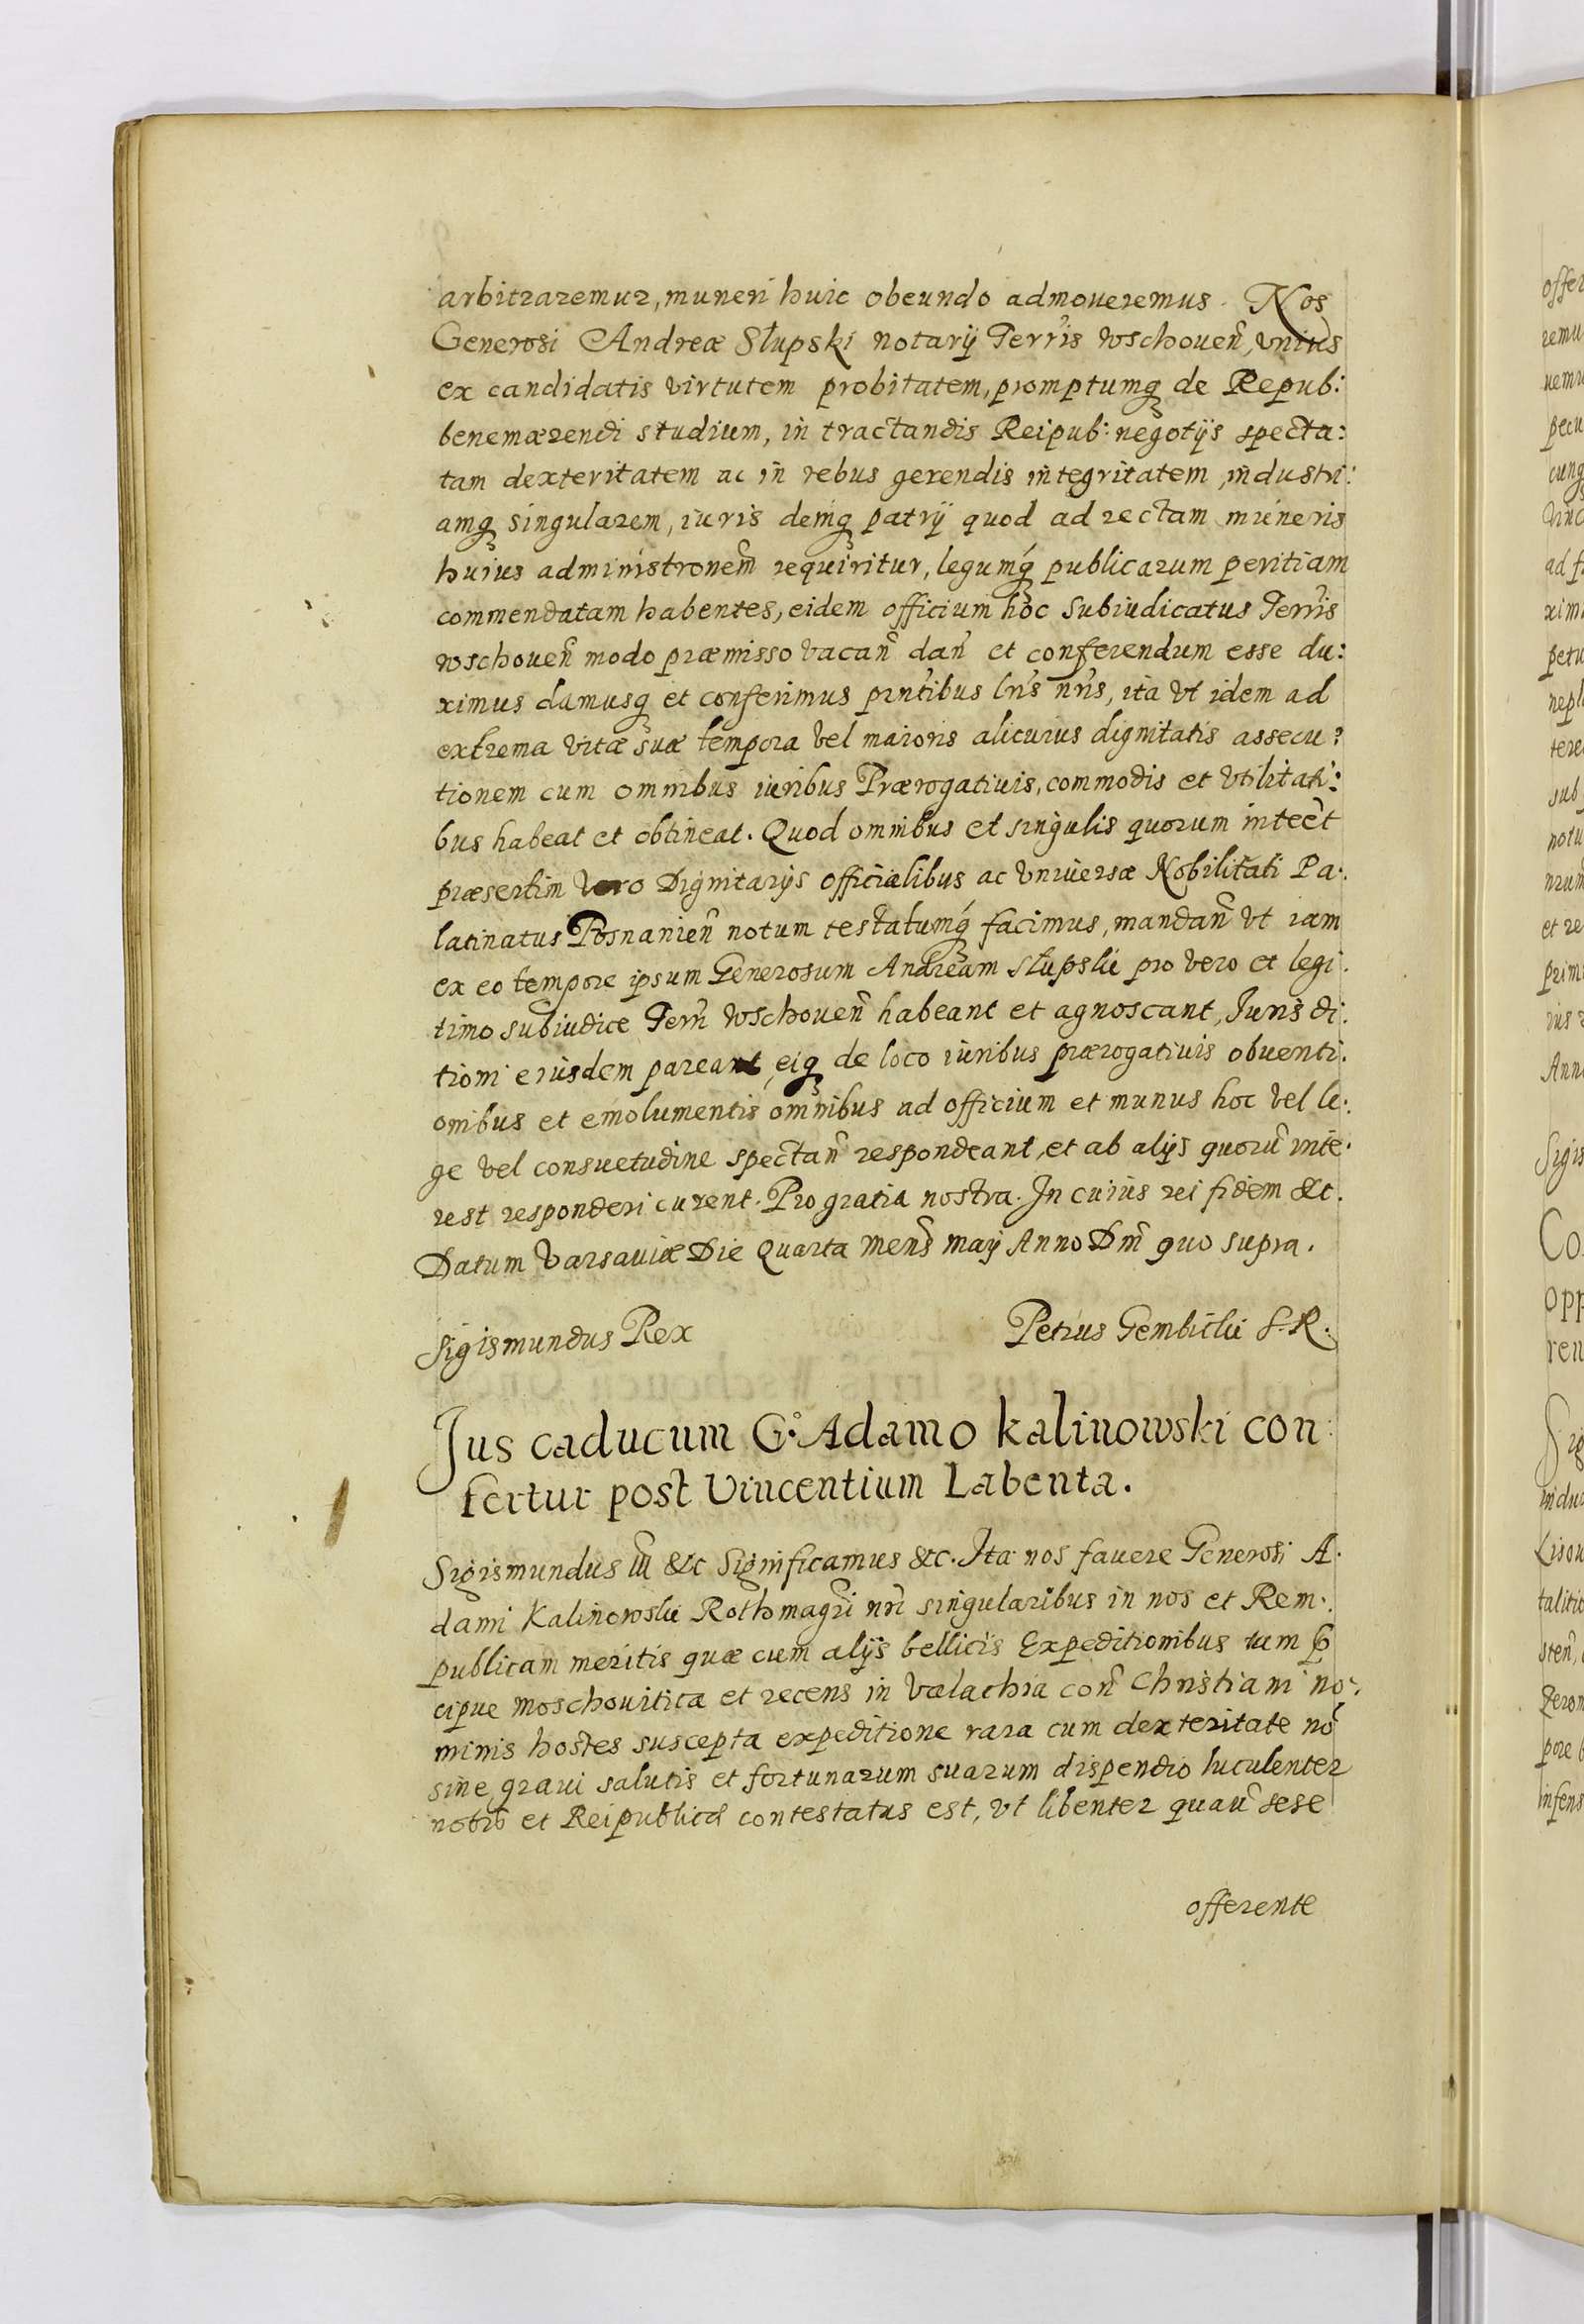 arbitraremur, muneri huic obeundo admoueremus. Nos
Generosi Andreæ Słupski notarÿ Terrïs wschoueñ, vnius
ex candidatis virtutem probitatem, promptumq̢ de Repub:
benemærendi studium, in tractandis Reipub: negotÿs specta:
tam dexteritatem ac in rebus gerendis integritatem, industri:
amq̢ singularem, iuris demq̢ patrÿ quod ad rectam muneris
huius administronem̃ requiritur, legumq̢́ publicarum peritiam
commendatam habentes, eidem officium hoc Subiudicatus Terrïs
wschoueñ modo præmisso vacañ dañ et conferendum esse du:
ximus damusq̢ et conferimus prñtibus lr̃is nr̃is, ita vt idem ad
extrema vitæ suæ tempora vel maioris alicuius dignitatis assecu:
tionem cum omnibus iuribus Prærogatiuis, commodis et vtilitati:
bus habeat et obtineat. Quod omnibus et singulis quorum inteẽt
præsertim vero Dignitarÿs officialibus ac vniuersæ Nobilitati Pa:
latinatus Posnanieñ notum testatumq̢́ facimus, mandañ vt iam
ex eo tempore ipsum Generosum Andream Słupski pro vero et legi:
timo subiudice Terr̃ wschoueñ habeant et agnoscant, Juris di:
tioni eiusdem pareant, eiq̢ de loco iuribus prærogatiuis obuenti:
onibus et emolumentis omnibus ad officium et munus hoc vel le:
ge vel consuetudine spectañ respondeant, et ab alÿs quorũ inte:
rest responderi curent. Pro gratia nostra. In cuius rei fidem &c.
Datum Varsauiæ Die Quarta Mens̃ maÿ Anno Dm̃ quo supra.
Sigismundus Rex Petrus Gembicki S. R.
Jus caducum G° Adamo kalinowski con:
fertur post Vincentium Labenta.
Sigismundus iii &c Significamus &c. Ita nos fauere Generosi A:
dami Kalinowski Rothmagr̃i nr̃i singularibus in nos et Rem:
publicam meritis quæ cum alÿs bellicis Expeditionibus tum p̃
cipue Moschouitica et recens in Valachia coñ Christiani no:
minis hostes suscepta expeditione rara cum dexteritate nõ
sine graui salutis et fortunarum suarum dispendio luculenter
nobis et Reipublicæ contestatus est, vt libenter quaũ sese
offerente